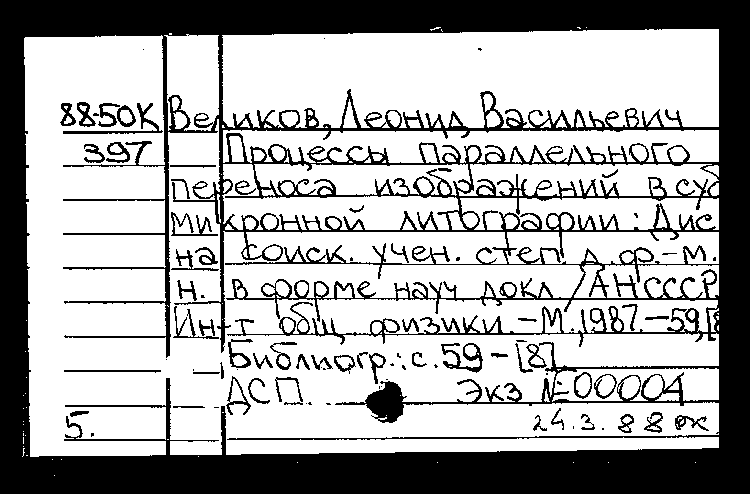 88-50К Великов, Леонид Васильевич
397 Процессы параллельного
переноса изображений в суб
микронной литографии: Дис
на соиск. учен. степ. д. ф.-м.
н. в форме науч докл / АН СССР,
Ин-т общ физики. -М., 1987. -59, [8
Библиогр.: с. 59 - [8]
ДСП. Экз №00004
5. 24.3.88